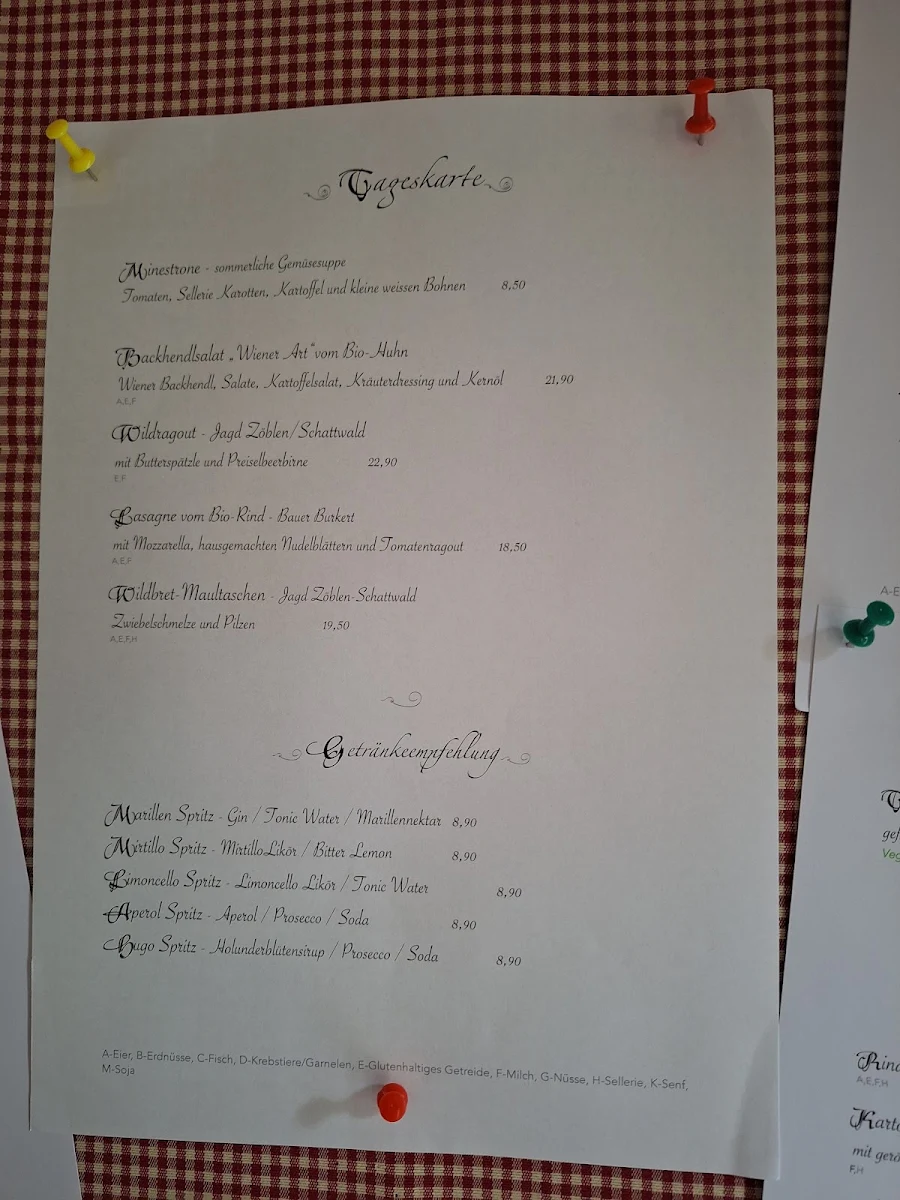 Tageskarte
Minestrone - sommerliche Gemüsesuppe
Tomaten, Sellerie Karotten, Kartoffel und kleine weissen Bohnen 8,50
Backhendlsalat „Wiener Art" vom Bio-Huhn
Wiener Backhendl, Salate, Kartoffelsalat, Kräuterdressing und Kernöl 21,90
A,E,F
Wildragout - Jagd Zöblen/Schattwald
mit Butterspätzle und Preiselbeerbirne 22,90
E,F
Lasagne vom Bio-Rind - Bauer Burkert
mit Mozzarella, hausgemachten Nudelblättern und Tomatenragout 18,50
A,E,F
Wildbret-Maultaschen - Jagd Zöblen-Schattwald
Zwiebelschmelze und Pilzen 19,50
A,E,F,H
Getränkeempfehlung
Marillen Spritz - Gin / Tonic Water / Marillennektar 8,90
Mirtillo Spritz - MirtilloLikör / Bitter Lemon 8,90
Limoncello Spritz - Limoncello Likör / Tonic Water 8,90
Aperol Spritz - Aperol / Prosecco / Soda 8,90
Hugo Spritz - Holunderblütensirup / Prosecco / Soda 8,90
A-Eier, B-Erdnüsse, C-Fisch, D-Krebstiere/Garnelen, E-Glutenhaltiges Getreide, F-Milch, G-Nüsse, H-Sellerie, K-Senf,
M-Soja
A,E,F,H
mit
F,H